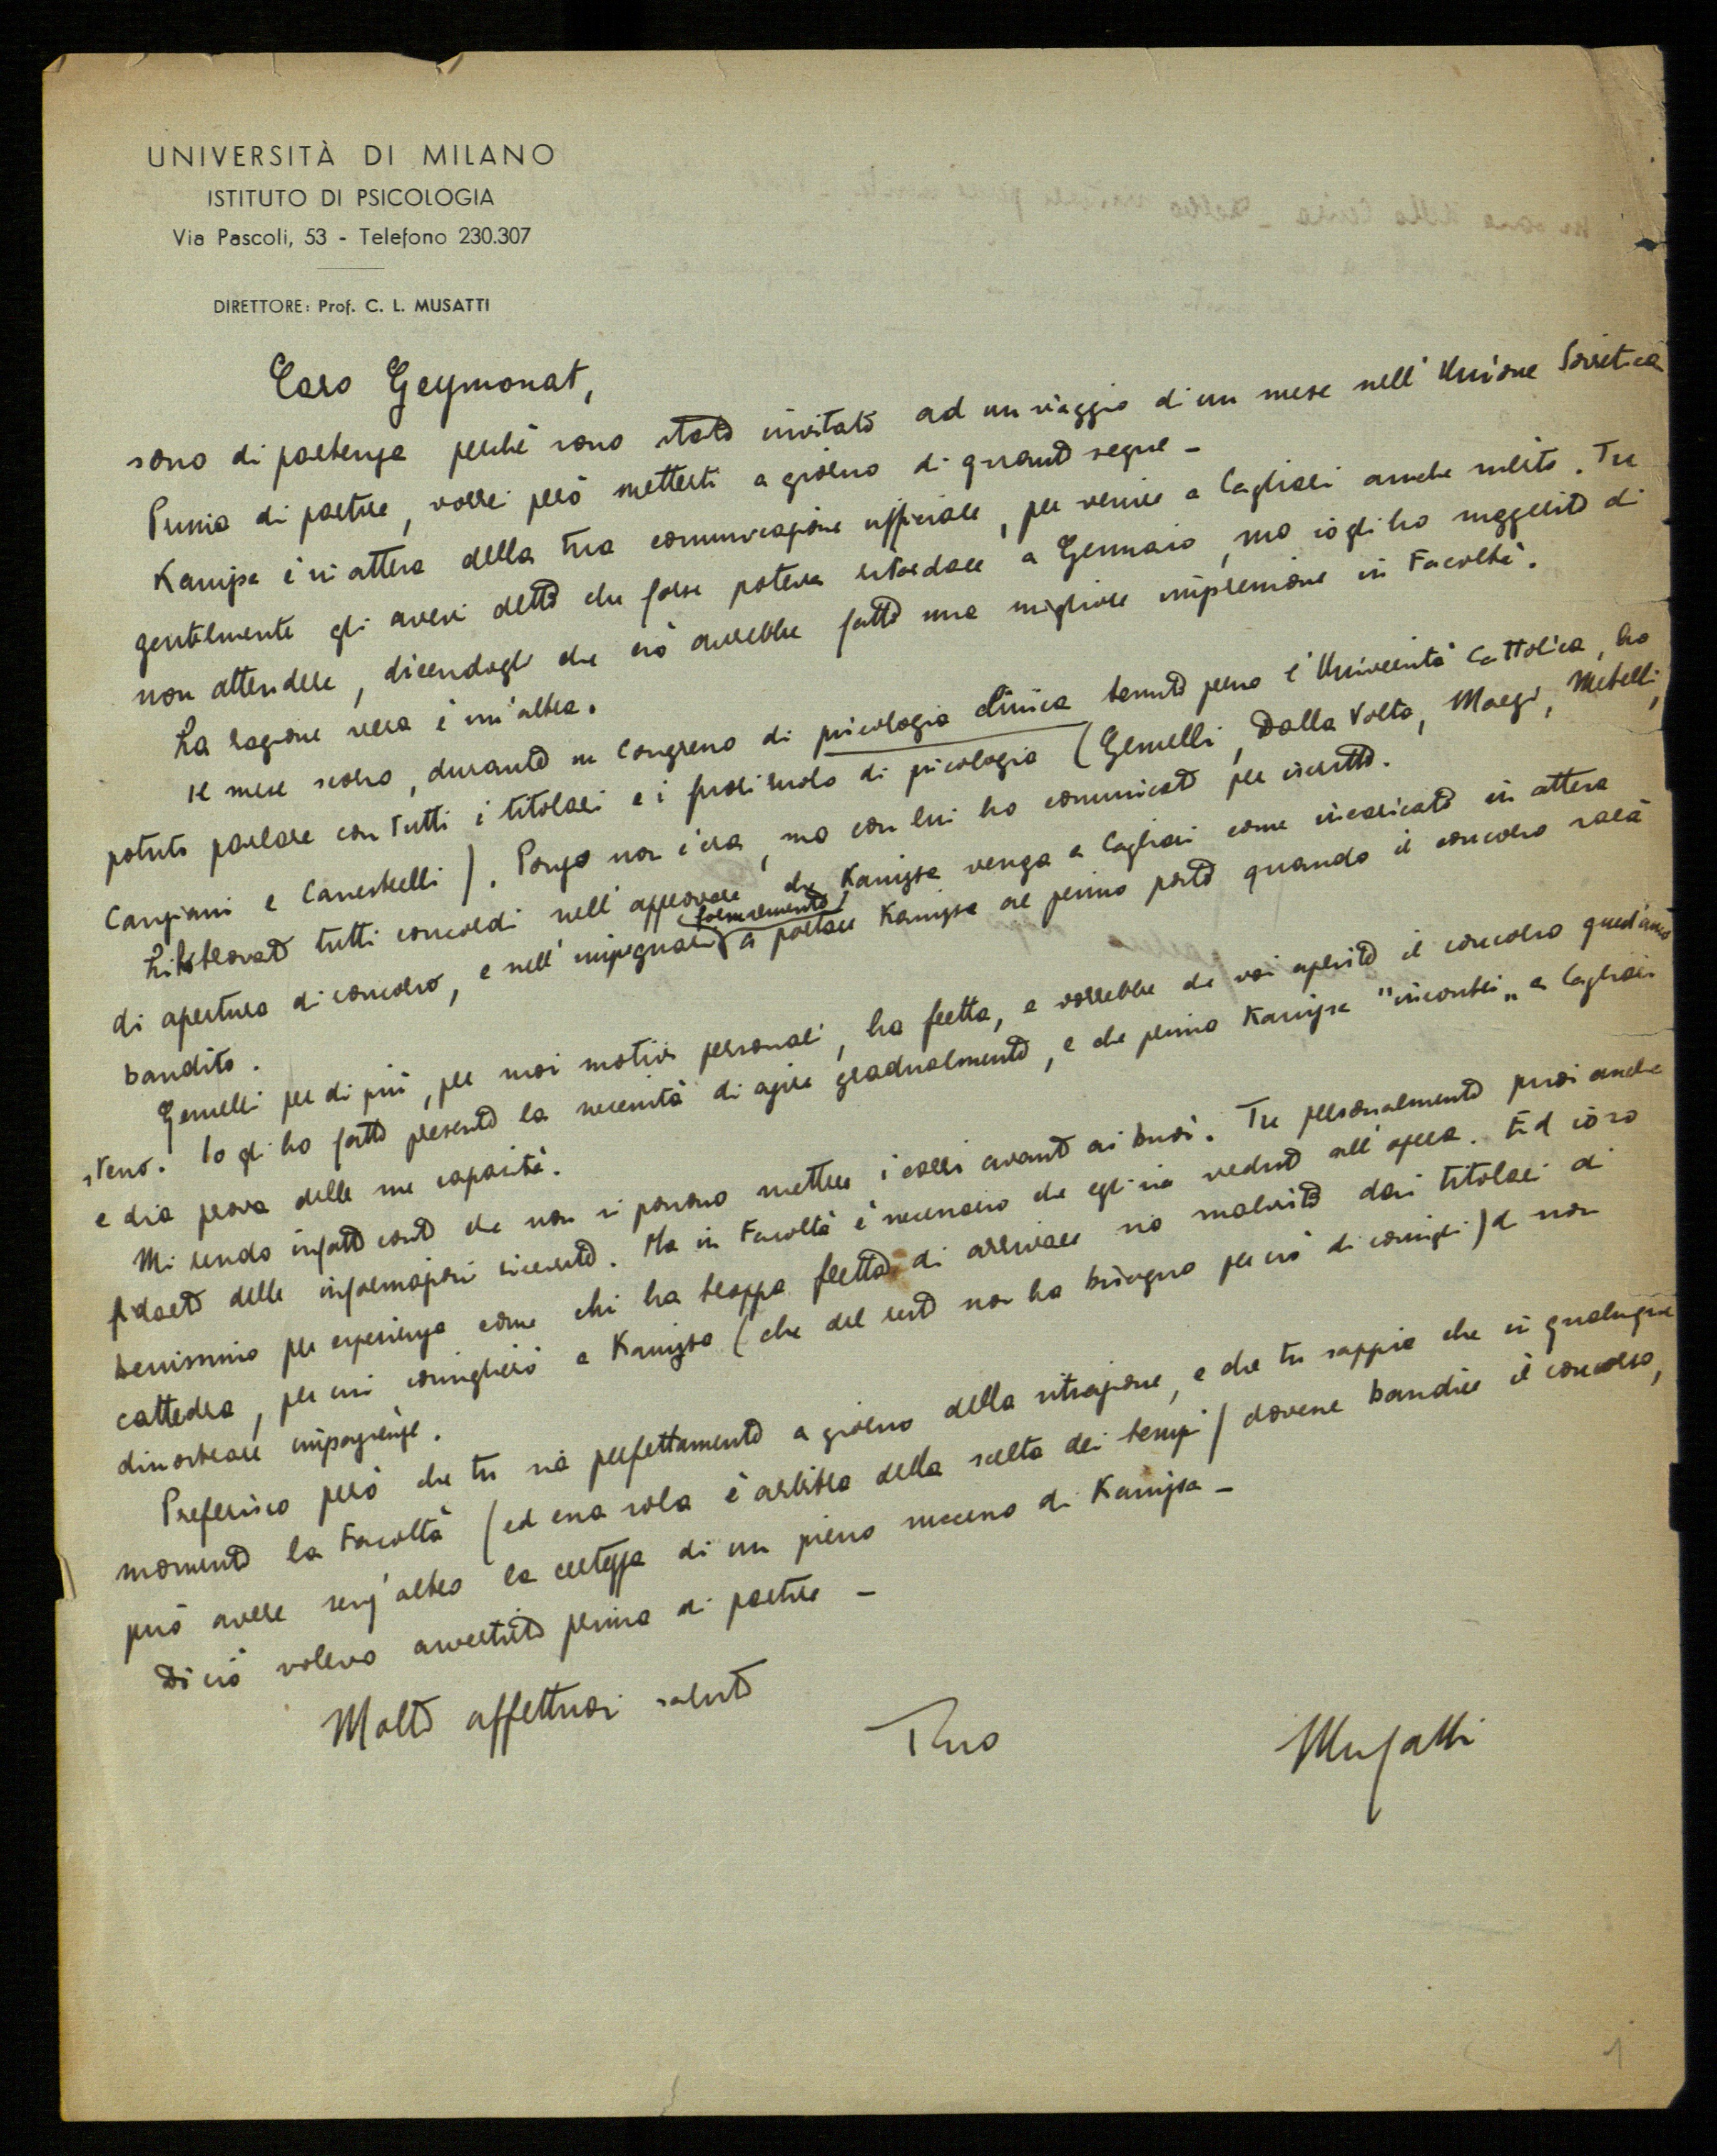 UNIVERSITÀ DI MILANO
ISTITUTO DI PSICOLOGIA
Via Pascoli, 53 - Telefono 230.307
DIRETTORE: Prof. C. L. MUSATTI
Caro Geymonat,
sono di partenza perché sono stato invitato ad un viaggio di un mese nell'Unione Sovietica
Prima di partire, vorrei però metterti a giorno di quanto segue -
Kanizsa è in attesa della tua comunicazione ufficiale, per venire a Cagliari anche subito. Tu
gentilmente gli avevi detto che forse poteva ritardare a Gennaio, ma io gli ho suggerito di
non attendere, dicendogli che ciò avrebbe fatto una migliore impressione in Facoltà.
La ragione vera è un'altra.
Il mese scorso, durante un Congresso di psicologia clinica tenuto presso l'Università Cattolica, ho
potuto parlare con tutti i titolari e i fuori ruolo di psicologia (Gemelli, Dalla Volta, Marzi, Metelli,
Cangiani e Canestrelli). Ponzo non c'era, ma con lui ho comunicato per iscritto.
Li ho trovati tutti concordi nell'approvare che Kanizsa venga a Cagliari come incaricato in attesa
di apertura di concorso, e nell'impegnarsi formalmente a portare Kanizsa al primo posto quando il concorso sarà
bandito.
Gemelli per di più, per suoi motivi personali, ha fretta, e vorrebbe che voi apriste il concorso quest'anno
stesso. Io gli ho fatto presente la necessità di agire gradualmente, e che prima Kanizsa "incontri" a Cagliari
e dia prova delle sue capacità.
Mi rendo infatti conto che non si possono mettere i carri avanti ai buoi. Tu personalmente puoi anche
fidarti delle informazioni ricevute. Ma in Facoltà è necessario che egli sia veduto all'opera. Ed io so
benissimo per esperienza come chi ha troppa fretta di arrivare sia malvisto dai titolari di
cattedra, per cui consiglierò a Kanizsa (che del resto non ha bisogno perciò di consigli) di non
dimostrare impazienze.
Preferisco però che tu sia perfettamente a giorno della situazione, e che tu sappia che in qualunque
momento la Facoltà (ed essa sola è arbitra della scelta dei tempi) dovesse bandire il concorso,
può avere senz'altro la certezza di un pieno successo di Kanizsa -
Di ciò volevo avvertirti prima di partire -
Molti affettuosi saluti
Tuo
Musatti
1